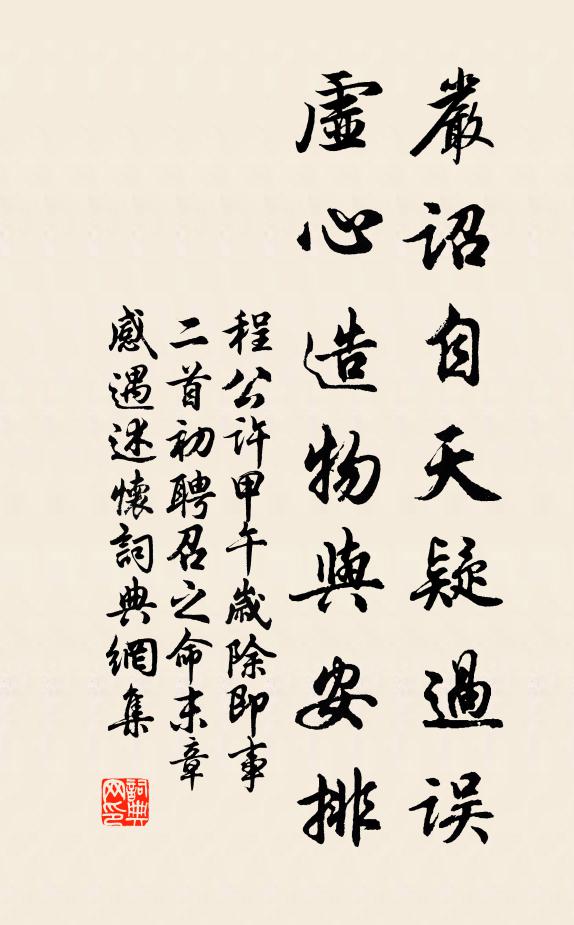 嚴詔自天疑過誤
虛心造物與安排
程公許甲午歲除即事
二首初聘召之命末章
感遇述懷詞典網集
詞典
网印